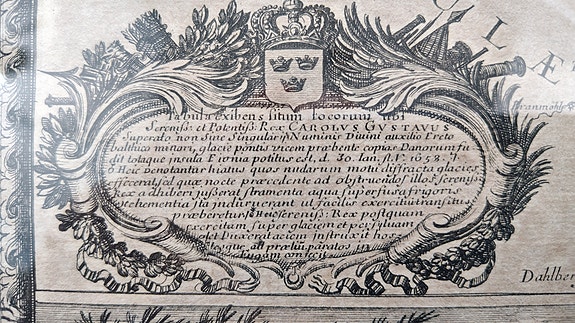 CLÆ
Branmöhle
Tabula exibens situm locorum, ubi
Sereniss: et Potentiss: Rex CAROLVS GVSTAVUS
Supra &, non Sine Singulari Numinis Divini auxilio Freto
balthico militari, glacie pontis vicem præbente copias Danorum fu
dit totaque insula Fionia potitus est, d. 30. Ian. st. V. 1658.
Heic denotantur hiatus quos nudarum moti diffracta glacies,
effecerat, ad quæ nocte præcedente ad obstruendos illos, Sereniss
Rex adhiberi jusserat stramenta, aquis superfusa, frigoris
vehementia ita induruerant, ut facilis exercitui transitus
præberetur. Heic Sereniss: Rex postquam
exercitum, super glaciem et per sylvam
Duxerat aciem instruxit hos
tesque, ad prælium paratos in
fugam conjecit
Dahlber